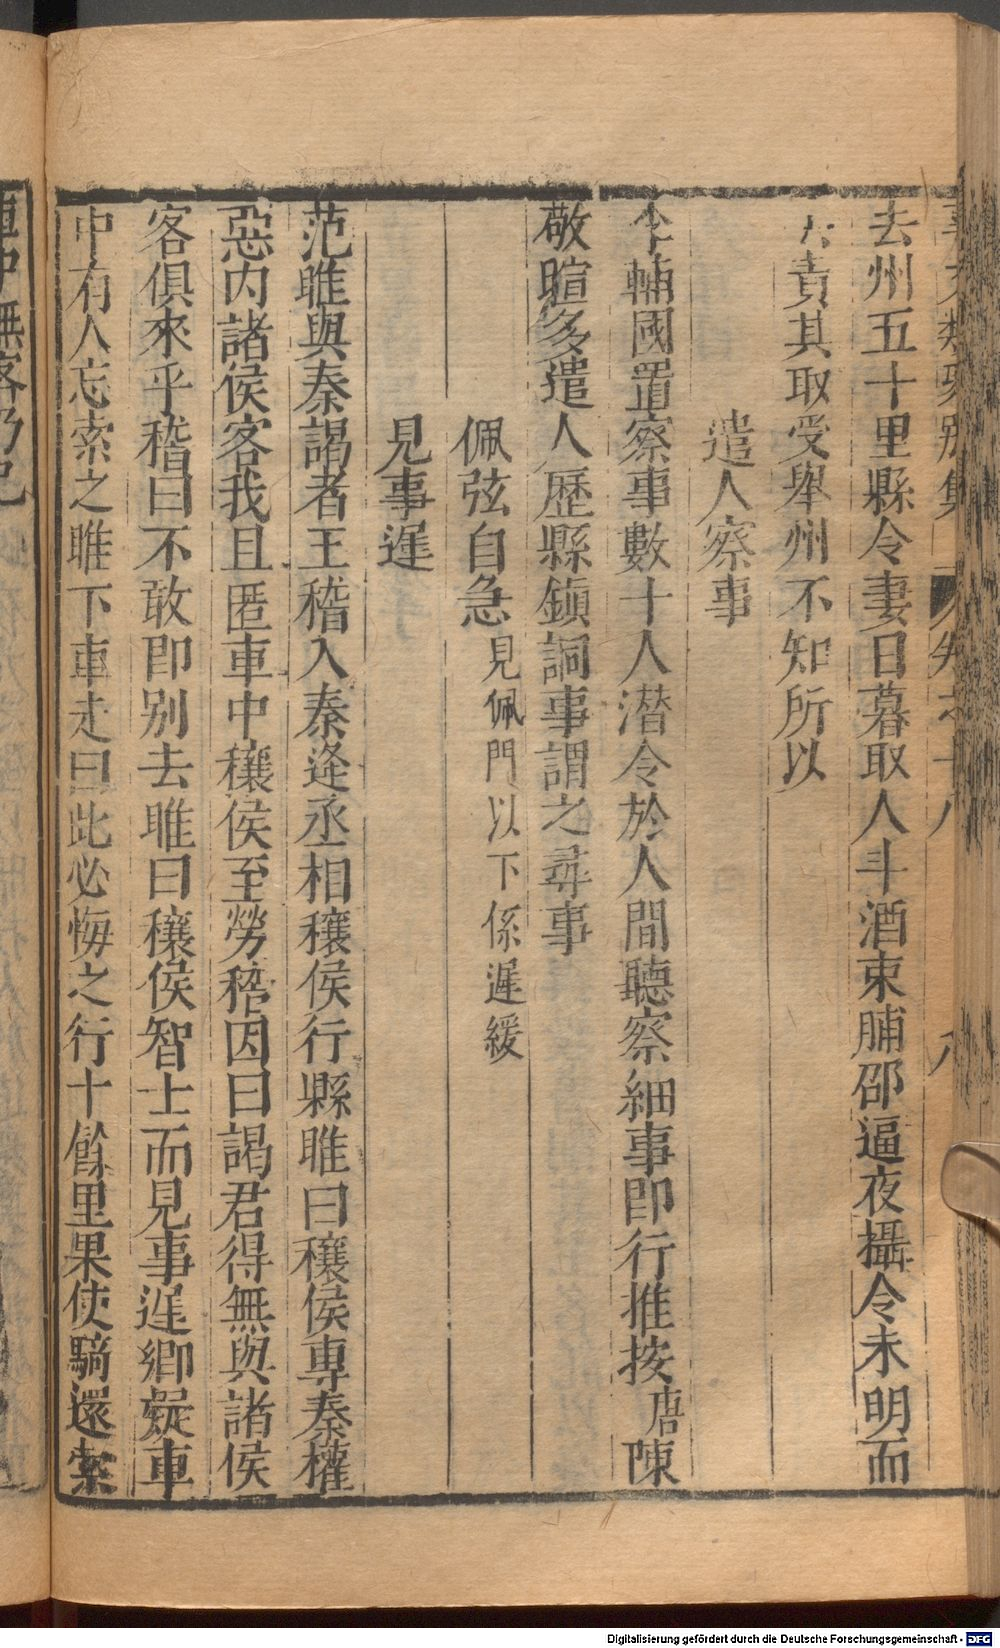 事文類聚別集 卷之十八 八
去州五十里縣令妻日暮取人斗酒束脯邵逼夜攝令未明而
責其取受舉州不知所以
遣人察事
李輔國置察事數十人潛令於人間聽察細事即行推按唐陳
敬瑄多遣人歷縣鎮詗事謂之尋事
佩弦自急見佩門以下係遲緩
見事遲
范睢與秦謁者王稽入秦逢丞相穰侯行縣睢曰穰侯專秦權
惡内諸侯客我且匿車中穰侯至勞稽因曰謁君得無與諸侯
客俱來乎稽曰不敢即别去睢曰穰侯智士而見事遲鄉疑車
中有人忘索之睢下車走曰此必悔之行十餘里果使騎還索
車中無客乃已
Digitalisierung gefördert durch die Deutsche Forschungsgemeinschaft - DFG